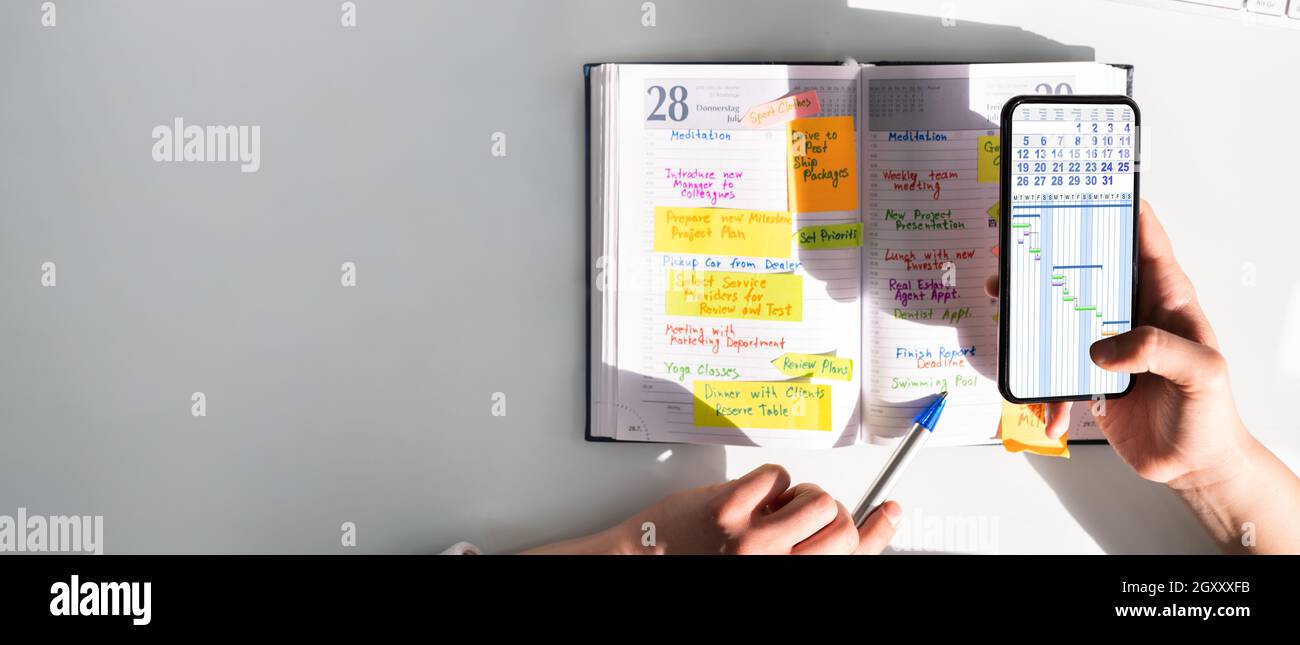 28
Donnerstag
Juli
Sport Clothes
Meditation
Drive to
Post
Ship
Packages
Introduce new
Manager to
Colleagues
Prepare new Milestone
Project Plan
Set Priorits
Pickup Car from Dealer
Select Service
Providers for
Review and Test
Meeting with
Marketing Department
Yoga Classes
Review Plans
Dinner with Clients
Reserve Table
28.7.
Meditation
Weekly team
meeting
New Project
Presentation
Lunch with new
Investor
Real Estate
Agent Appt.
Dentist Appt.
Finish Report
Deadline
Swimming Pool
1 2 3 4
5 6 7 8 9 10 11
12 13 14 15 16 17 18
19 20 21 22 23 24 25
26 27 28 29 30 31
M T W T F S S M T W T F S S
Alt Gr
alamy
alamy
Image ID: 2GXXXFB
www.alamy.com